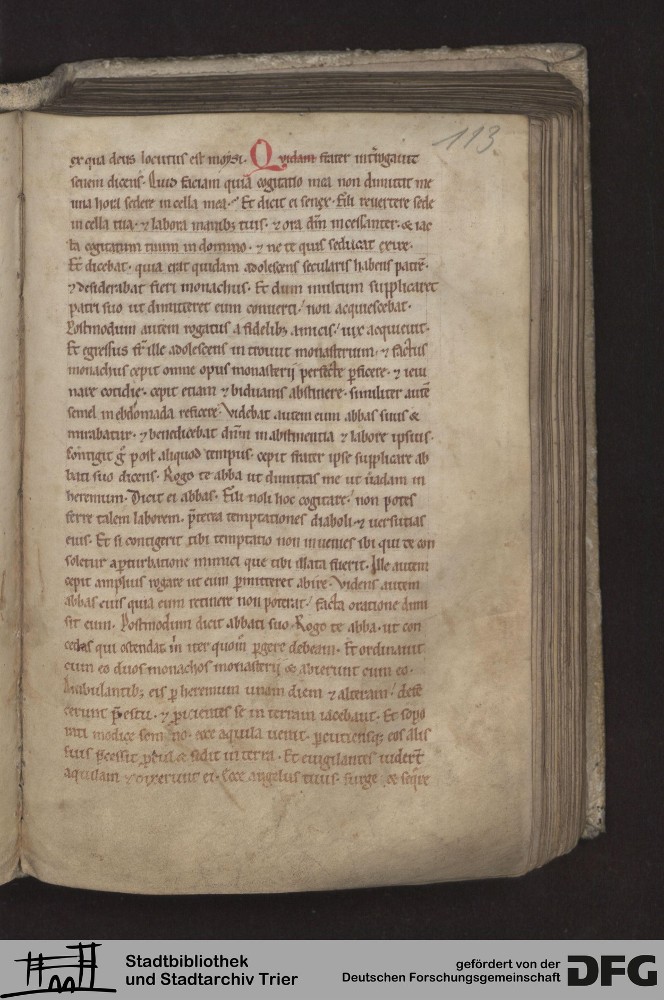 113.
ex qua deus locutus est moysi. Quidam frater int̄rogauit
senem dicens. Quid faciam quia cogitatio mea non dimittit me
una hora sedere in cella mea. Et dicit ei senex. Fili reuertere sede
in cella tua. ⁊ labora manibꝫ tuis. ⁊ ora dn̄m incessanter. & iac
ta cogitatum tuum in domino. ⁊ ne te quis seducat exire.
Et dicebat. quia erat quidam adolescens secularis habens patrē.
⁊ desiderabat fieri monachus. Et dum multum supplicaret
patri suo ut dimitteret eum conuerti. non acquiescebat.
Postmodum autem rogatus a fidelibꝫ amicis. uix acquieuit.
Et egressus fr̄ ille adolescens introiuit monasterium. ⁊ factus
monachus cepit omne opus monasterii perfecte ꝑficere. ⁊ ieiu
nare cotidie. cepit etiam ⁊ biduanis abstinere. similiter autē
semel in ebdomada reficere. Videbat autem eum abbas suus &
mirabatur. ⁊ benedicebat dn̄m in abstinentia ⁊ labore ipsius.
Contigit g̊ post aliquod tempus. cepit frater ipse supplicare ab
bati suo dicens. Rogo te abba ut dimittas me ut uadam in
heremum. Dicit ei abbas. Fili noli hoc cogitare. non potes
ferre talem laborem. p̄terea temptationes diaboli. ⁊ uersutias
eius. Et si contigerit tibi temptatio non inuenies ibi qui te con
soletur a ꝑturbatione inimici que tibi illata fuerit. Ille autem
cepit amplius rogare ut eum ꝑmitteret abire. Videns autem
abbas eius quia eum retinere non poterat. facta oratione dimi
sit eum. Postmodum dicit abbati suo. Rogo te abba. ut con
cedas qui ostendat m̄ iter quom̄ ꝑgere debeam. Et ordinauit
cum eo duos monachos monasterii & abierunt cum eo.
Ambulantibꝫ eis ꝑ heremum unam diem ⁊ alteram. defe
cerunt p̄ estu. ⁊ ꝓicientes se in terram iacebant. Et sopo
rati modice somno. ecce aquila uenit. ꝑcutiensqꝫ eos alis
suis p̄cessit ꝓcul & sedit in terra. Et euigilantes uider̄t
aquilam ⁊ dixerunt ei. Ecce angelus tuus. surge & seq̄re
Stadtbibliothek
und Stadtarchiv Trier
gefördert von der
Deutschen Forschungsgemeinschaft DFG